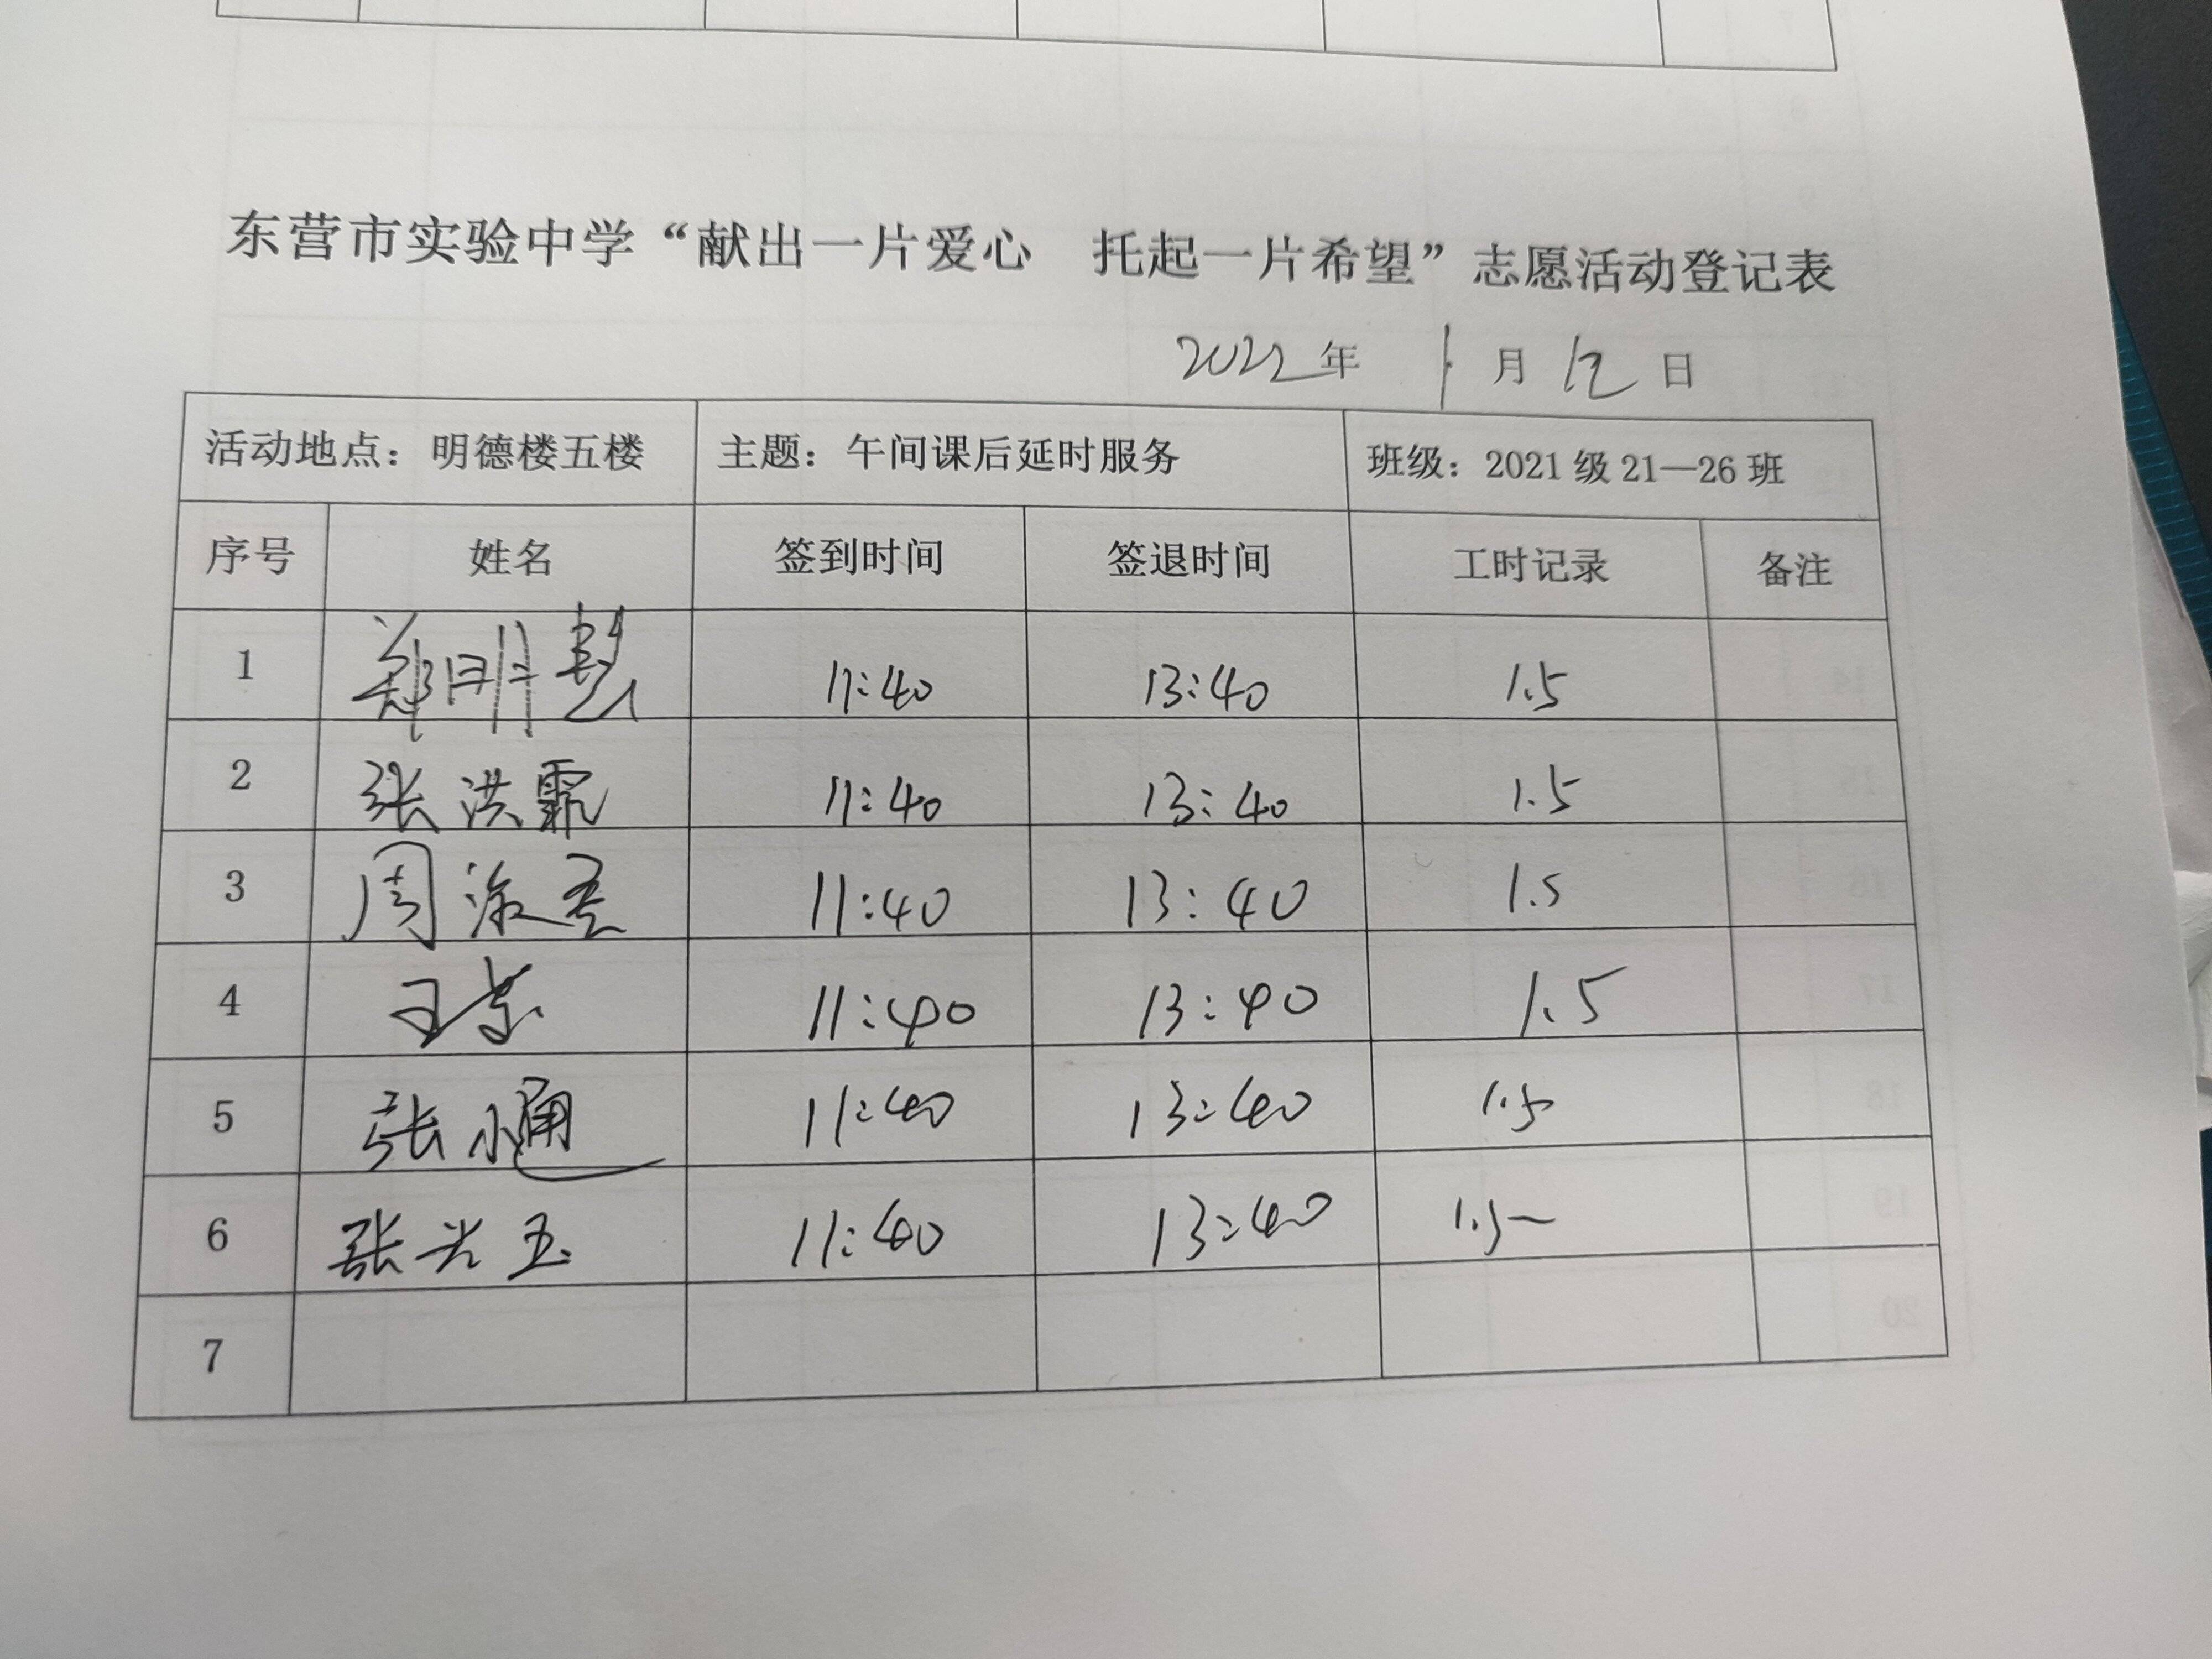 东营市实验中学“献出一片爱心 托起一片希望”志愿活动登记表
2022年 1月12日
活动地点：明德楼五楼 主题：午间课后延时服务 班级：2021级21—26班
序号 姓名 签到时间 签退时间 工时记录 备注
1 郑明慧 11:40 13:40 1.5
2 张洪霏 11:40 13:40 1.5
3 周 11:40 13:40 1.5
4 王 11:40 13:40 1.5
5 张小通 11:40 13:40 1.5
6 张兴玉 11:40 13:40 1.5
7